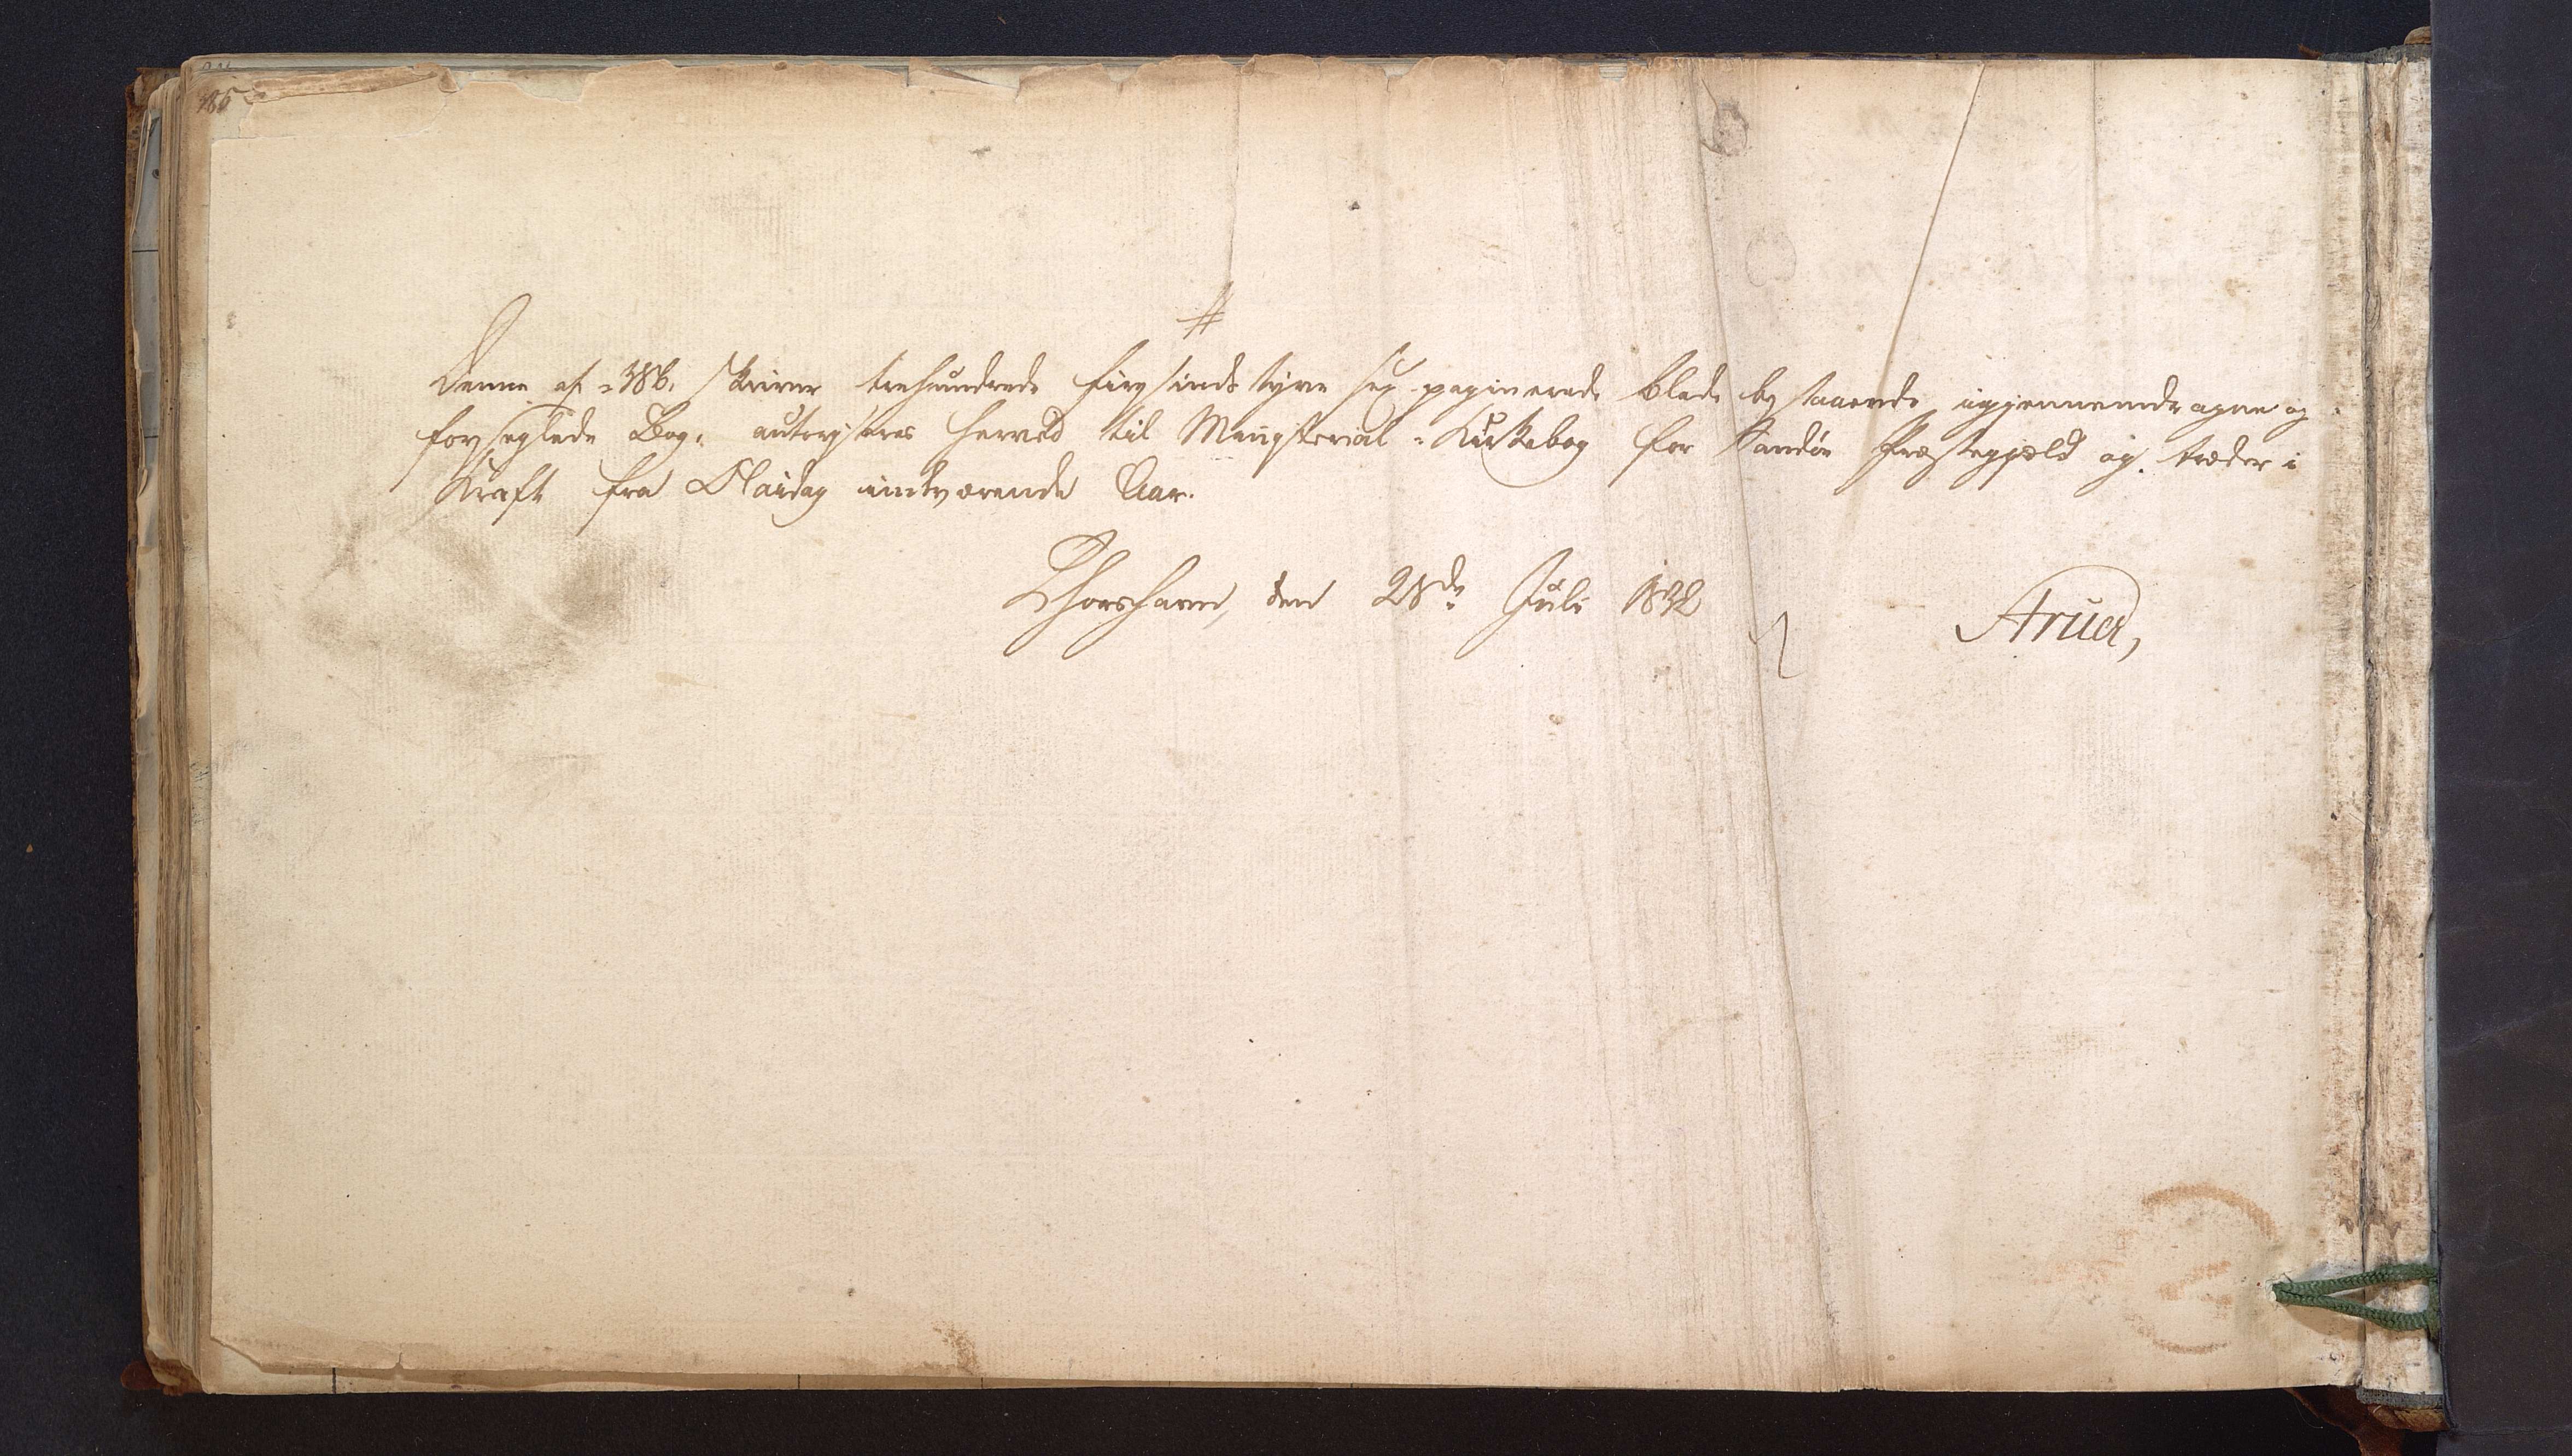 #
Denne af "386", skriver trehundrede fiirsindstyve sex paginerede blade bestaaende, igjennemdragne og
forseglede Bog, autoriseres herved til Ministerial-Kirkebog for Sandøe Præstegjeld og træder i
Kraft fra Maidag indeværende Aar.
Thorshavn, den 28de Juli 1832